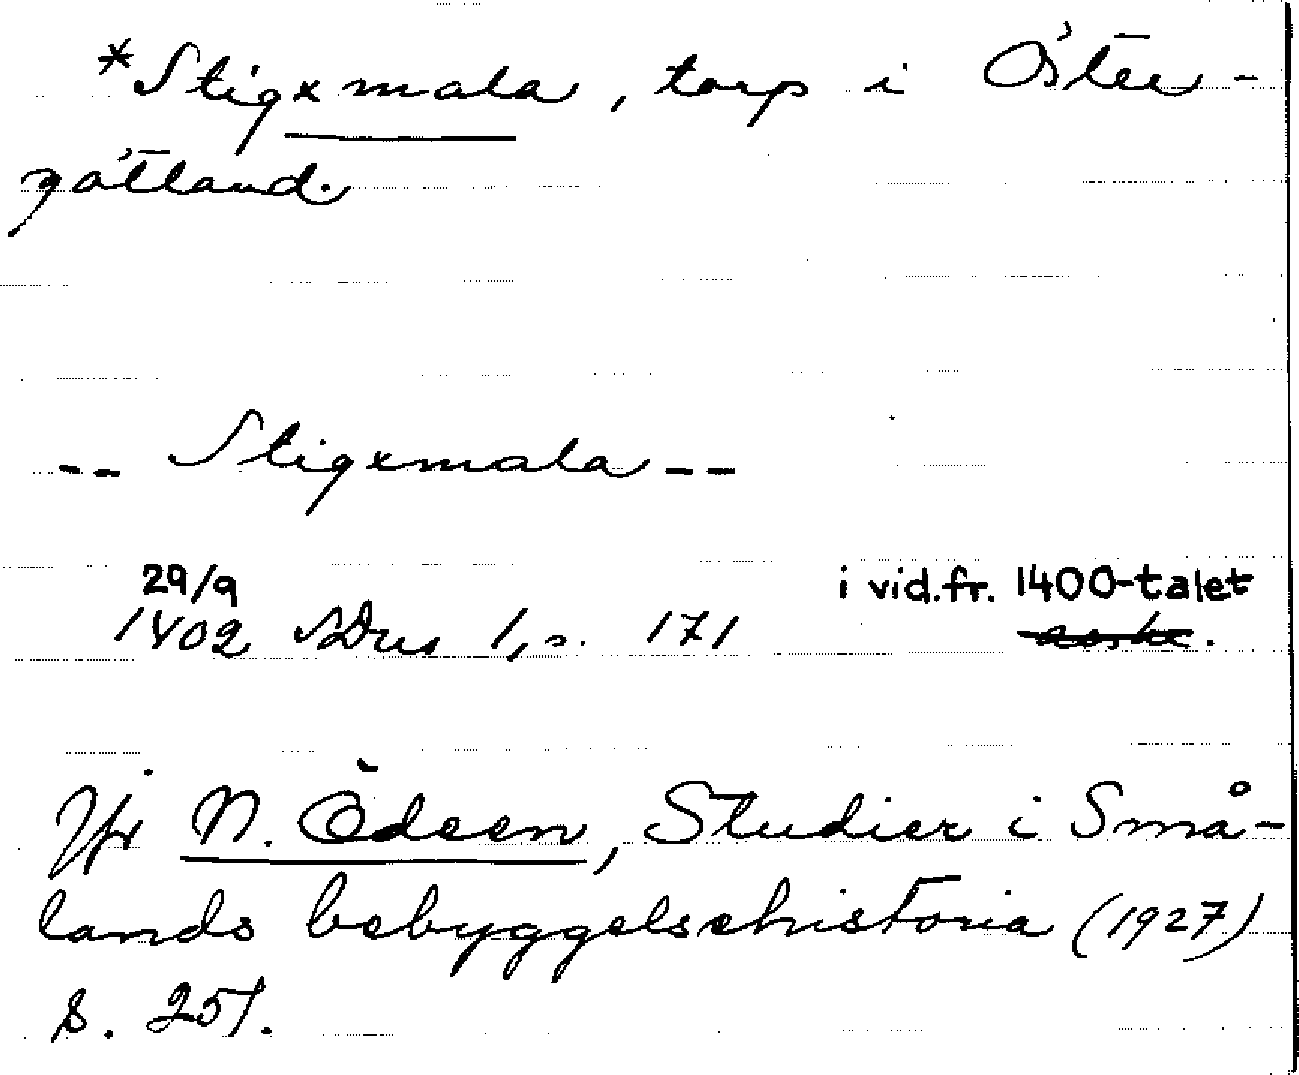 *Stigxmala, torp i Öster-
götland.
-- Stigxmala --
29/9 i vid.fr. 1400-talet
1402 SDns 1, s. 171
Jfr N. Ödeen, Studier i Små-
lands bebyggelsehistoria (1927)
s. 251.